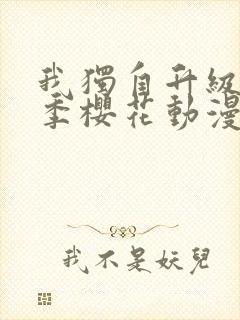 我獨自升級
季櫻花動漫
我不是妖兒